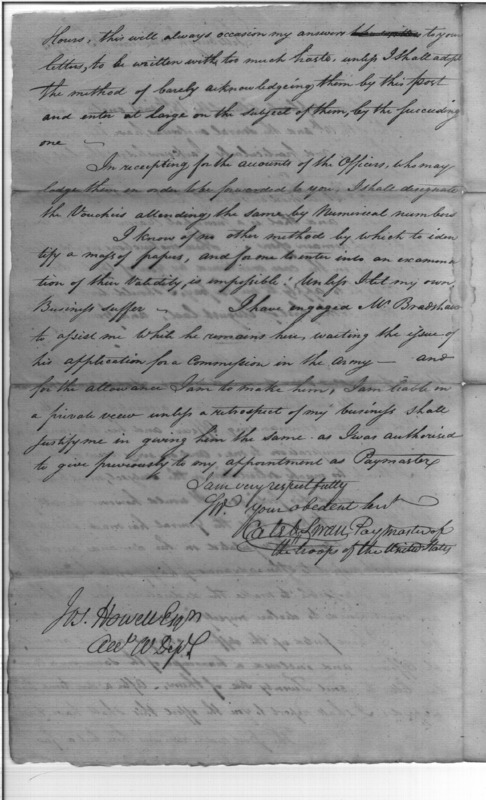 Hours, this will always occasion my answers to your
letters, to be written with too much haste, unless I shall adopt
the method of barely acknowledgeing them by this post
and enter at large on the subject of them, by the succeeding
one —
In receipting for the accounts of the Officers, who may
lodge them in order to be forwarded to you, I shall designate
the Vouchers attending the same by Numerical numbers
I know of no other method by which to iden
tify a mass of papers, and for me to enter into an examina
tion of their Validity, is impossible! Unless I let my own
Business suffer — I have engaged Mr Bradshaw
to assist me while he remains here, waiting the issue of
his application for a Commission in the Army — and
for the allowance I am to make him, I am liable in
a private view unless a retrospect of my business shall
justify me in giving him the same as I was authorised
to give previously to my appointment as Paymaster
I am very respectfully
Sir Your obedient Sert
Caleb Swan Paymaster of
the troops of the United States
Jos. Howell Esqr
Acct W. Dept